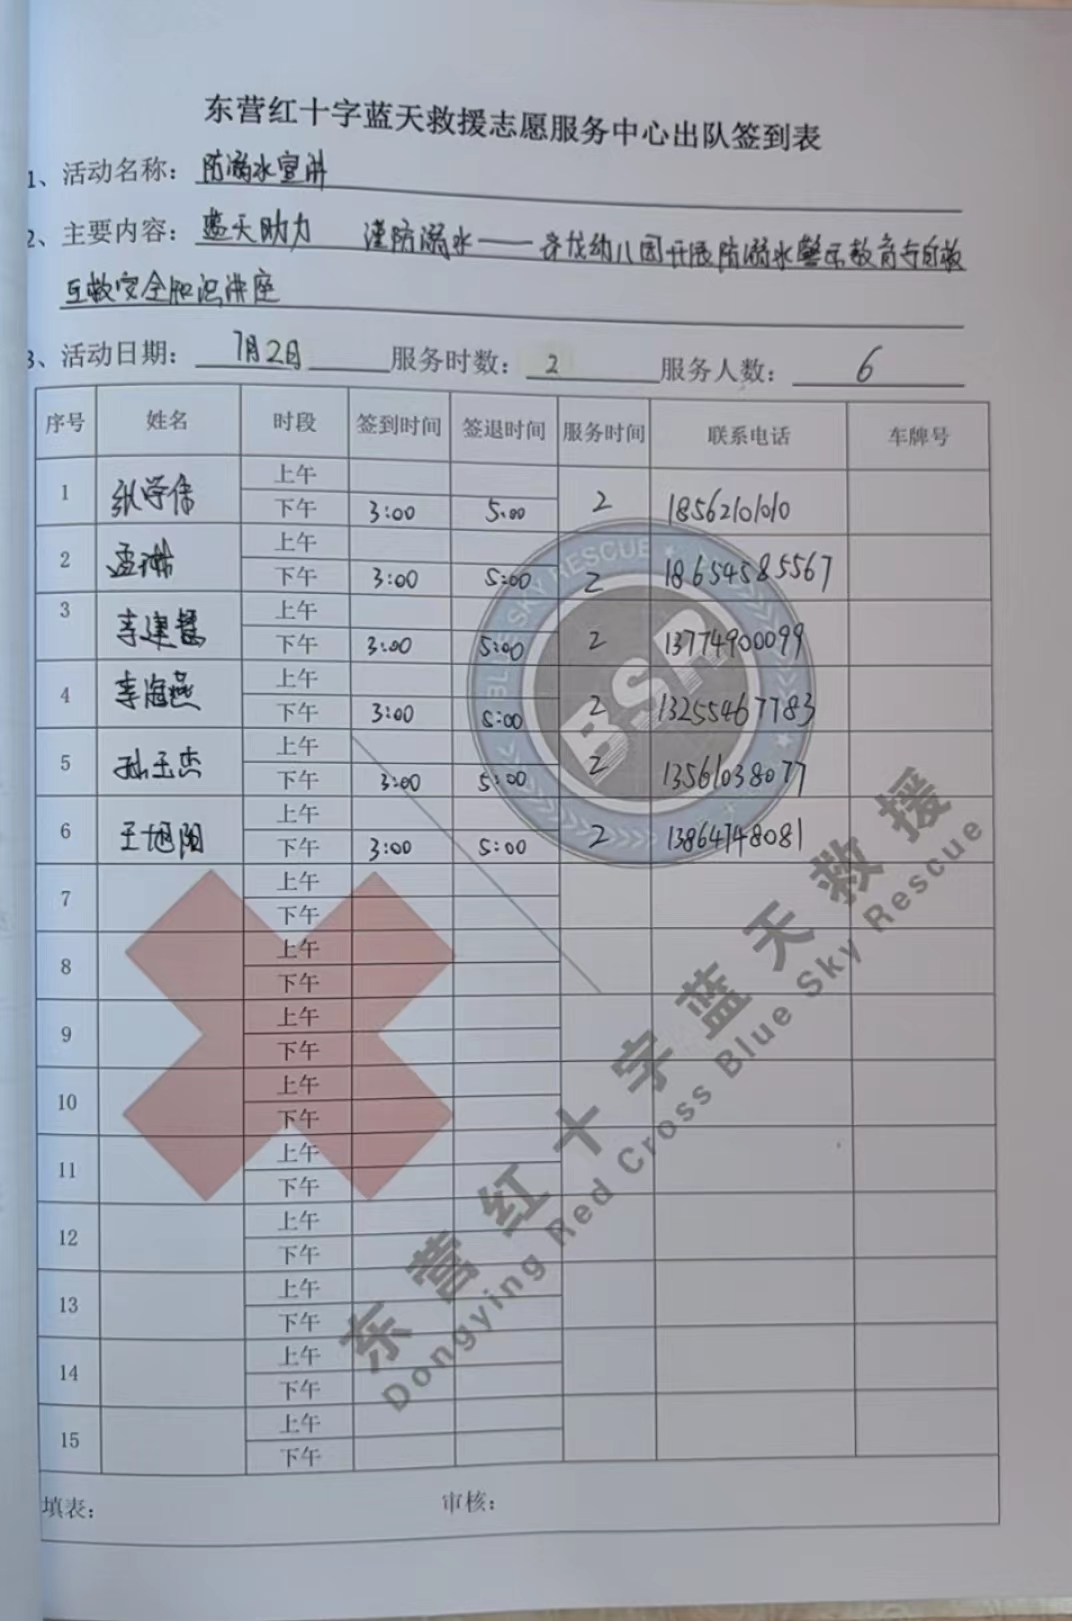 东营红十字蓝天救援志愿服务中心出队签到表
1、活动名称：防溺水宣讲
2、主要内容：蓝天助力 谨防溺水——幼儿园开展防溺水警示教育与自救
互救安全知识讲座
3、活动日期：7月2日 服务时数：2 服务人数：6
序号 姓名 时段 签到时间 签退时间 服务时间 联系电话 车牌号
1 张学伟 上午
下午 3:00 5:00 2 18562101010
2 孟琳 上午
下午 3:00 5:00 2 18654585567
3 李建 上午
下午 3:00 5:00 2 13774900099
4 李海燕 上午
下午 3:00 5:00 2 13255467783
5 孙玉杰 上午
下午 3:00 5:00 2 13561038077
6 王旭阳 上午
下午 3:00 5:00 2 13864748081
7 上午
下午
8 上午
下午
9 上午
下午
10 上午
下午
11 上午
下午
12 上午
下午
13 上午
下午
14 上午
下午
15 上午
下午
填表： 审核：
BLUE SKY RESCUE
BSR
东营红十字蓝天救援
Dongying Red Cross Blue Sky Rescue